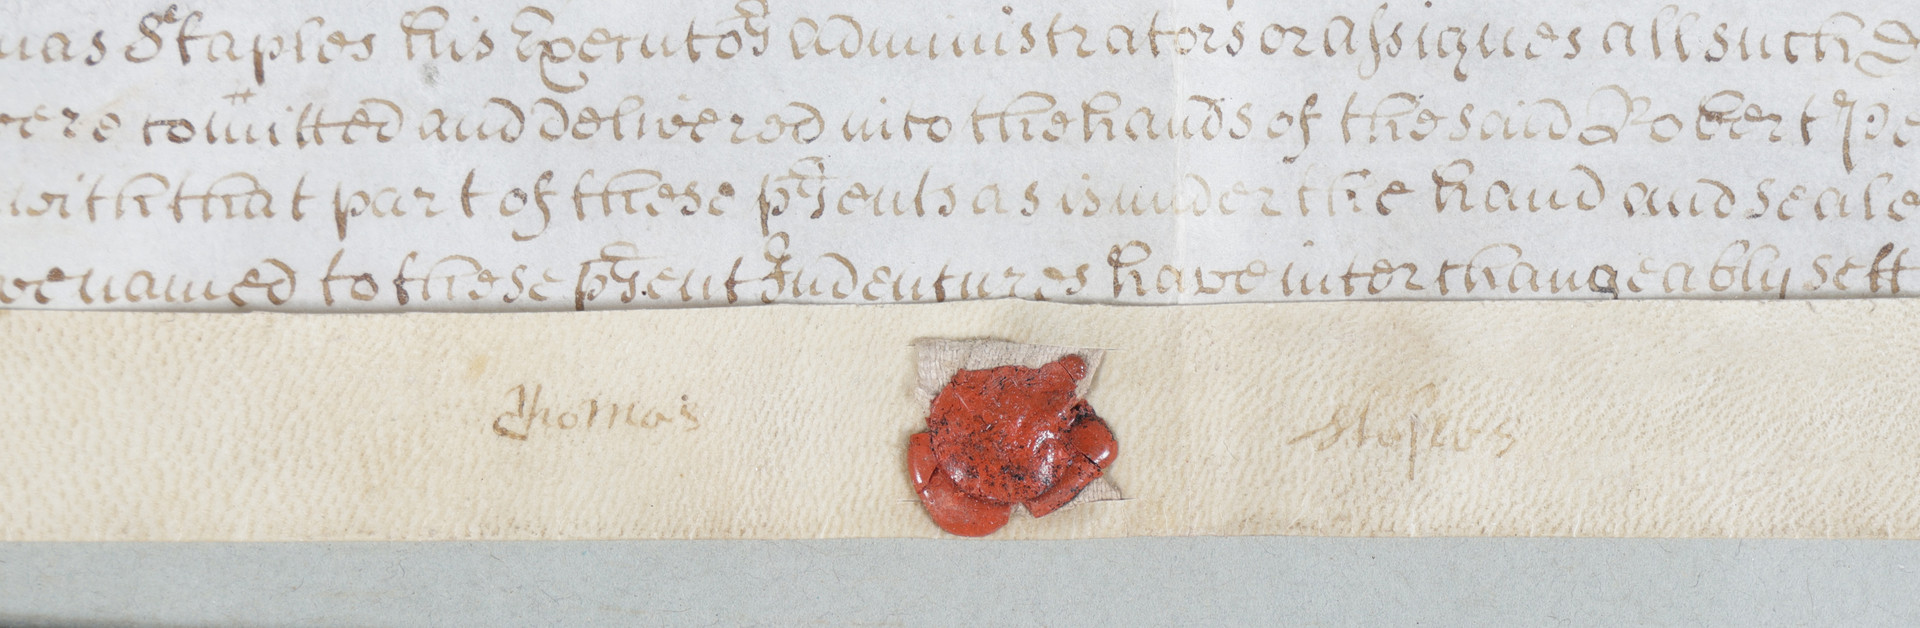 mas Staples his Executors administrators or assignes all such
were comitted and delivered into the hands of the said Robert
with that part of these prsents as is under the hand and seale
venamed to these prsent Indentures have interchangeably sett
Thomas Staples